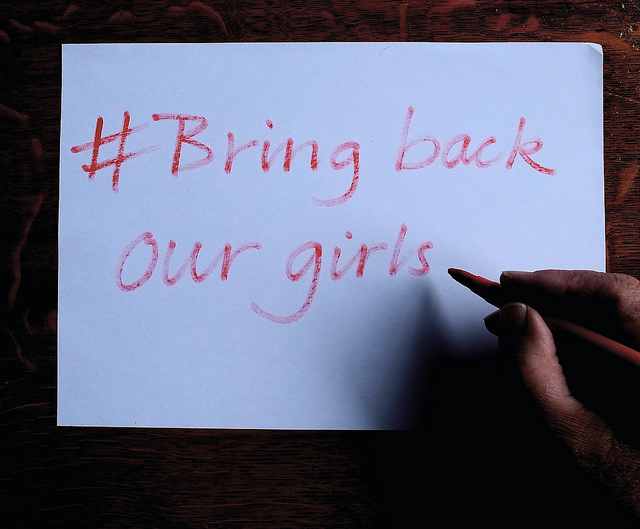 #Bring back
Our girls